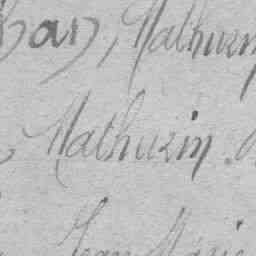 bas, Mathurin
Mathurin.
Jean Marie